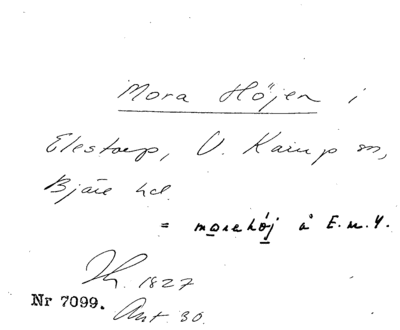 Mora Höjen i
Elestorp, V. Karup sn,
Bjäre hd.
= morehöj å E.m.Y.
1827
Nr 7099.
Ant. 30.